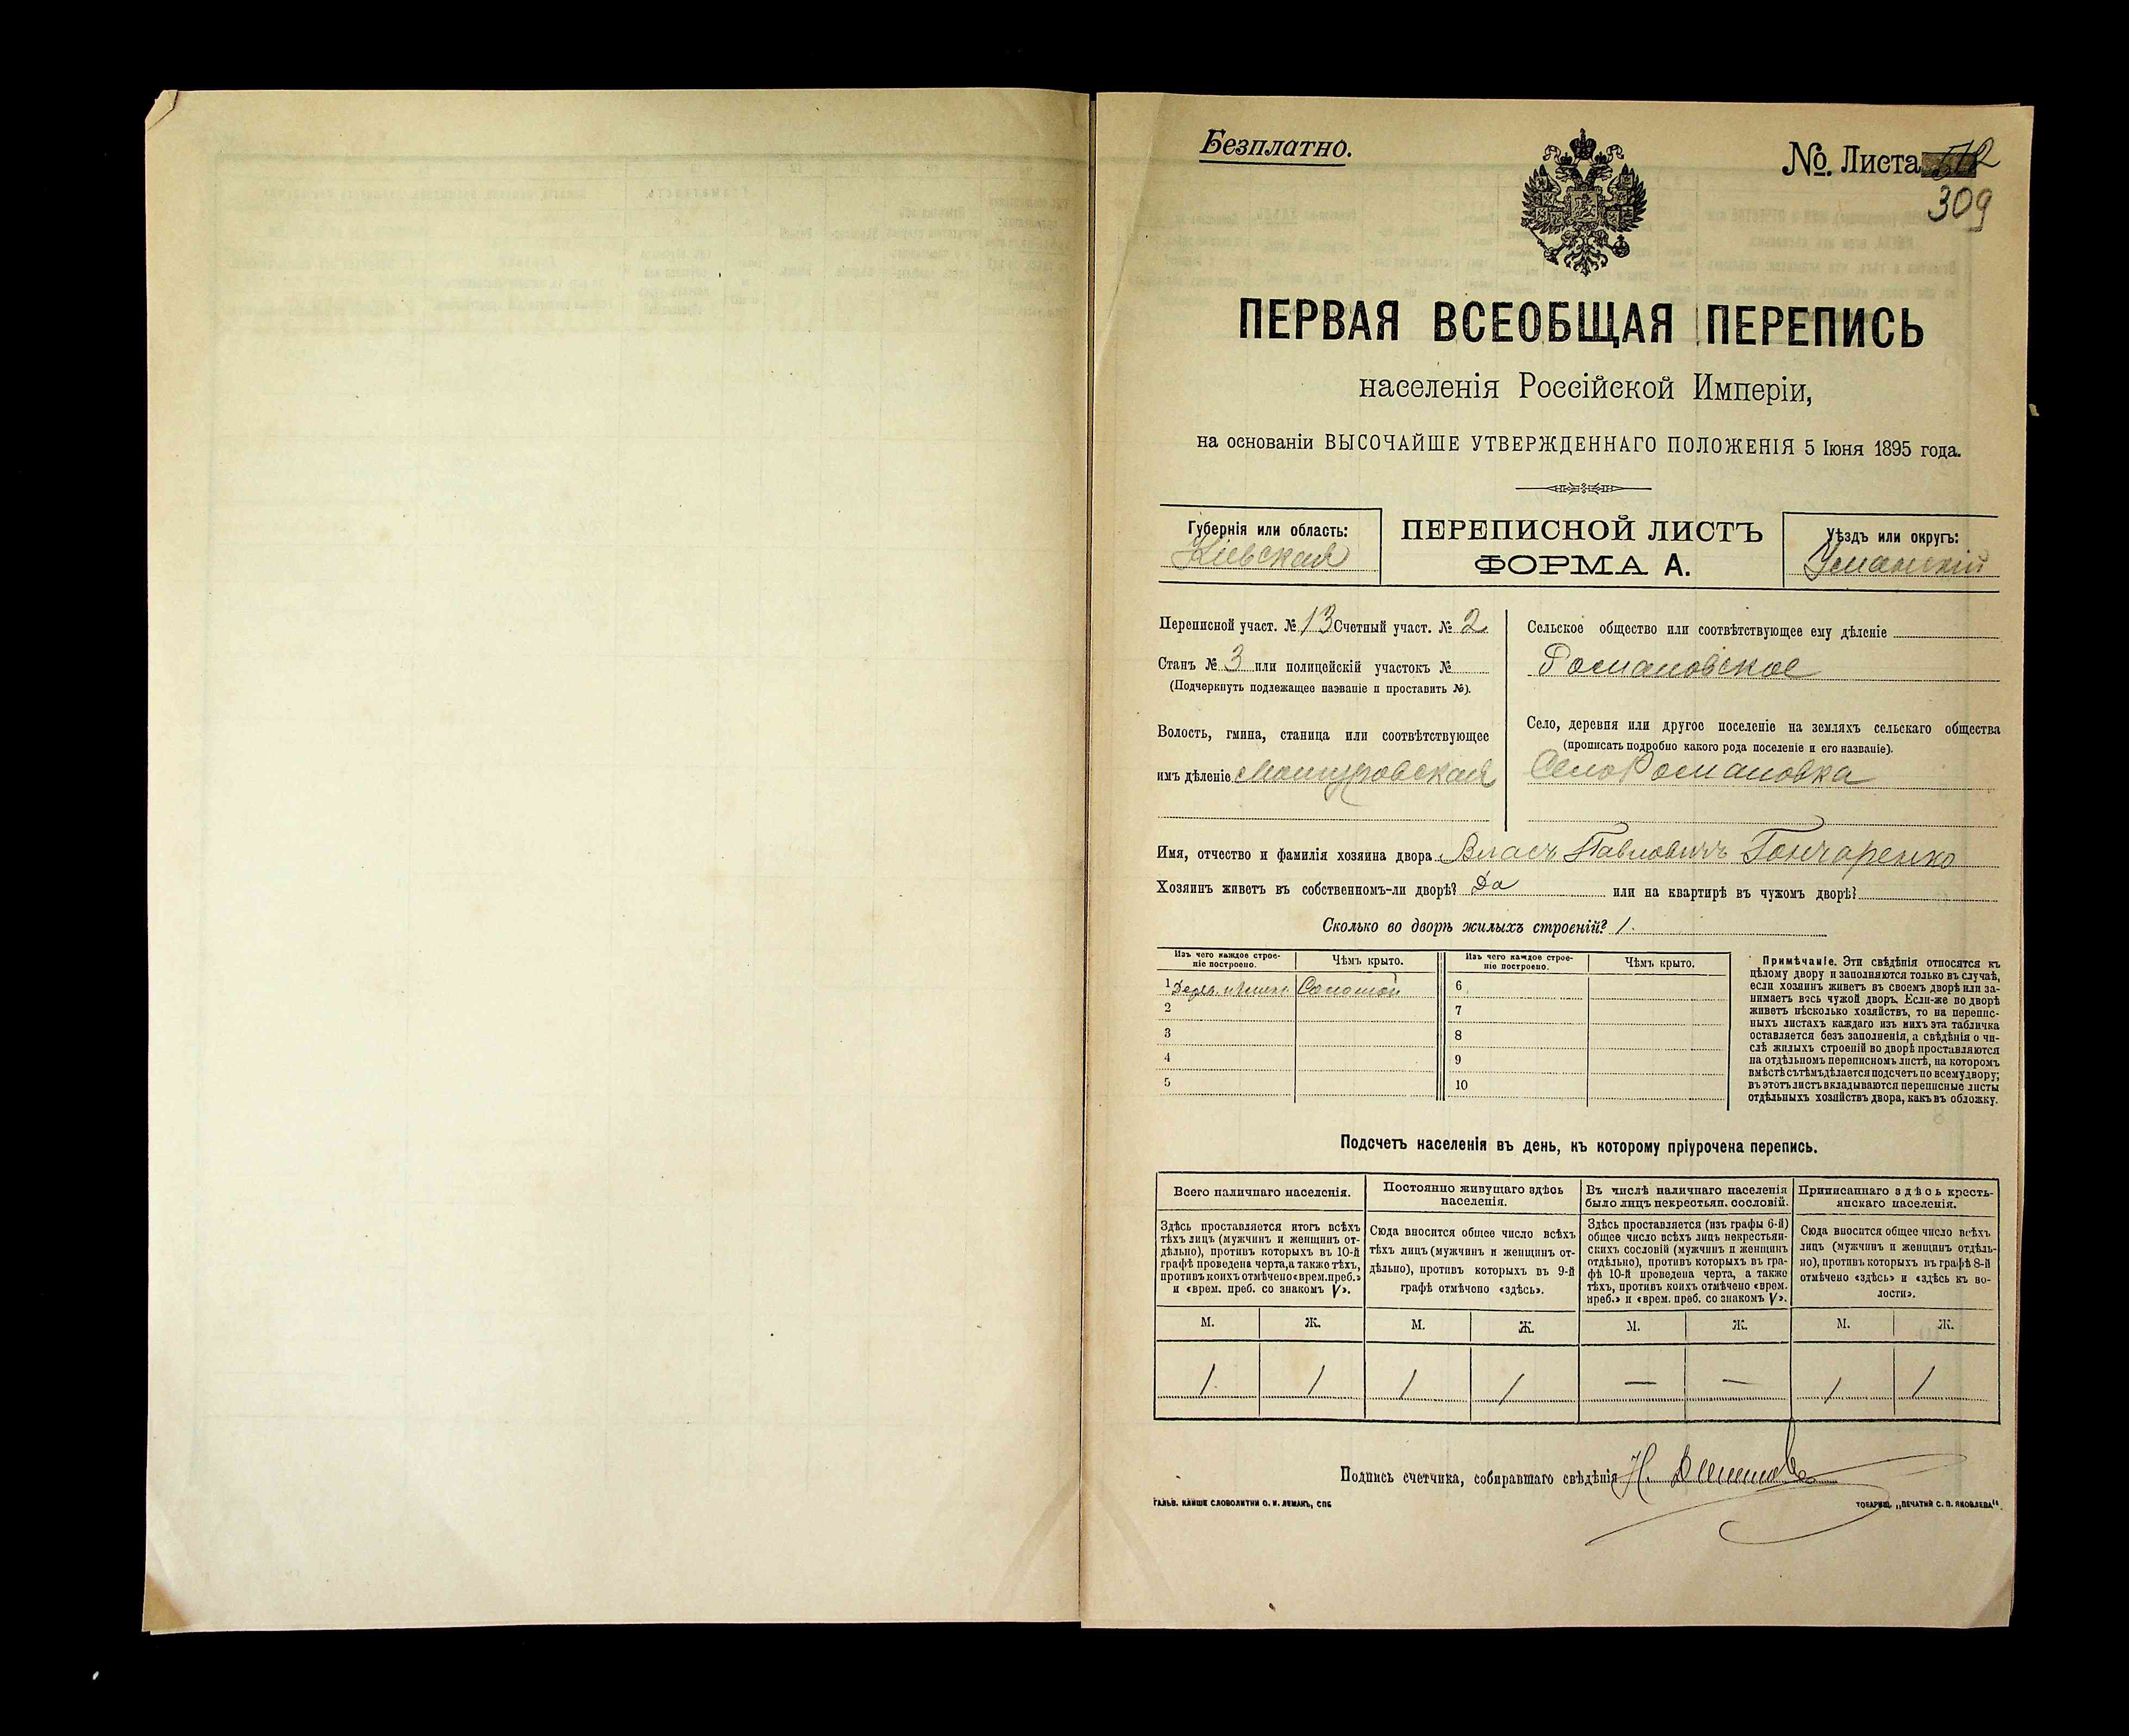 Безплатно.
№. Листа
309
ПЕРВАЯ ВСЕОБЩАЯ ПЕРЕПИСЬ
населенія Россійской Имперіи,
на основаніи ВЫСОЧАЙШЕ УТВЕРЖДЕННАГО ПОЛОЖЕНІЯ 5 Іюня 1895 года.
Губернія или область:
Кіевская
ПЕРЕПИСНОЙ ЛИСТЪ
ФОРМА А.
Уѣздъ или округъ:
Уманскій
Переписной участ. № 13 Счетный участ. № 2
Станъ № 3 или полицейскій участокъ №
(Подчеркнуть подлежащее названіе и проставить №).
Волость, гмина, станица или соотвѣтствующее
имъ дѣленіе
Сельское общество или соотвѣтствующее ему дѣленіе
Романовское
Село, деревня или другое поселеніе на земляхъ сельскаго общества
(прописать подробно какого рода поселеніе и его названіе).
Село Романовка
Имя, отчество и фамилія хозяина двора Власъ Павловичъ Гончаренко
Хозяинъ живетъ въ собственномъ-ли дворѣ? Да или на квартирѣ въ чужомъ дворѣ?
Сколько во дворѣ жилыхъ строеній? 1.
Изъ чего каждое строе-
ніе построено.
Чѣмъ крыто.
Изъ чего каждое строе-
ніе построено.
Чѣмъ крыто.
1 Соломой
6
2
7
3
8
4
9
5
10
Примѣчаніе. Эти свѣдѣнія относятся къ
цѣлому двору и заполняются только въ случаѣ,
если хозяинъ живетъ въ своемъ дворѣ или за-
нимаетъ весь чужой дворъ. Если-же во дворѣ
живетъ нѣсколько хозяйствъ, то на перепис-
ныхъ листахъ каждаго изъ нихъ эта табличка
оставляется безъ заполненія, а свѣдѣнія о чи-
слѣ жилыхъ строеній во дворѣ проставляются
на отдѣльномъ переписномъ листѣ, на которомъ
вмѣстѣ съ тѣмъ дѣлается подсчетъ по всему двору;
въ этотъ листъ вкладываются переписные листы
отдѣльныхъ хозяйствъ двора, какъ въ обложку.
Подсчетъ населенія въ день, къ которому пріурочена перепись.
Всего наличнаго населенія.
Здѣсь проставляется итогъ всѣхъ
тѣхъ лицъ (мужчинъ и женщинъ от-
дѣльно), противъ которыхъ въ 10-й
графѣ проведена черта, а также тѣхъ,
противъ коихъ отмѣчено «врем. преб.»
и «врем. преб. со знакомъ V».
Постоянно живущаго здѣсь
населенія.
Сюда вносится общее число всѣхъ
тѣхъ лицъ (мужчинъ и женщинъ от-
дѣльно), противъ которыхъ въ 9-й
графѣ отмѣчено «здѣсь».
Въ числѣ наличнаго населенія
было лицъ некрестьян. сословій.
Здѣсь проставляется (изъ графы 6-й)
общее число всѣхъ лицъ некрестьян-
скихъ сословій (мужчинъ и женщинъ
отдѣльно), противъ которыхъ въ гра-
фѣ 10-й проведена черта, а также
тѣхъ, противъ коихъ отмѣчено «врем.
преб.» и «врем. преб. со знакомъ V».
Приписаннаго здѣсь кресть-
янскаго населенія.
Сюда вносится общее число всѣхъ
лицъ (мужчинъ и женщинъ отдѣль-
но), противъ которыхъ въ графѣ 8-й
отмѣчено «здѣсь» и «здѣсь къ во-
лости».
М. Ж. М. Ж. М. Ж. М. Ж.
1 1 1 1 — — 1 1
Подпись счетчика, собиравшаго свѣдѣнія Н.
ГАЛЬВ. КЛИШЕ СЛОВОЛИТНИ О. И. ЛЕМАНЪ, СПБ
ТОВАРИЩ. „ПЕЧАТНЯ С. П. ЯКОВЛЕВА“.